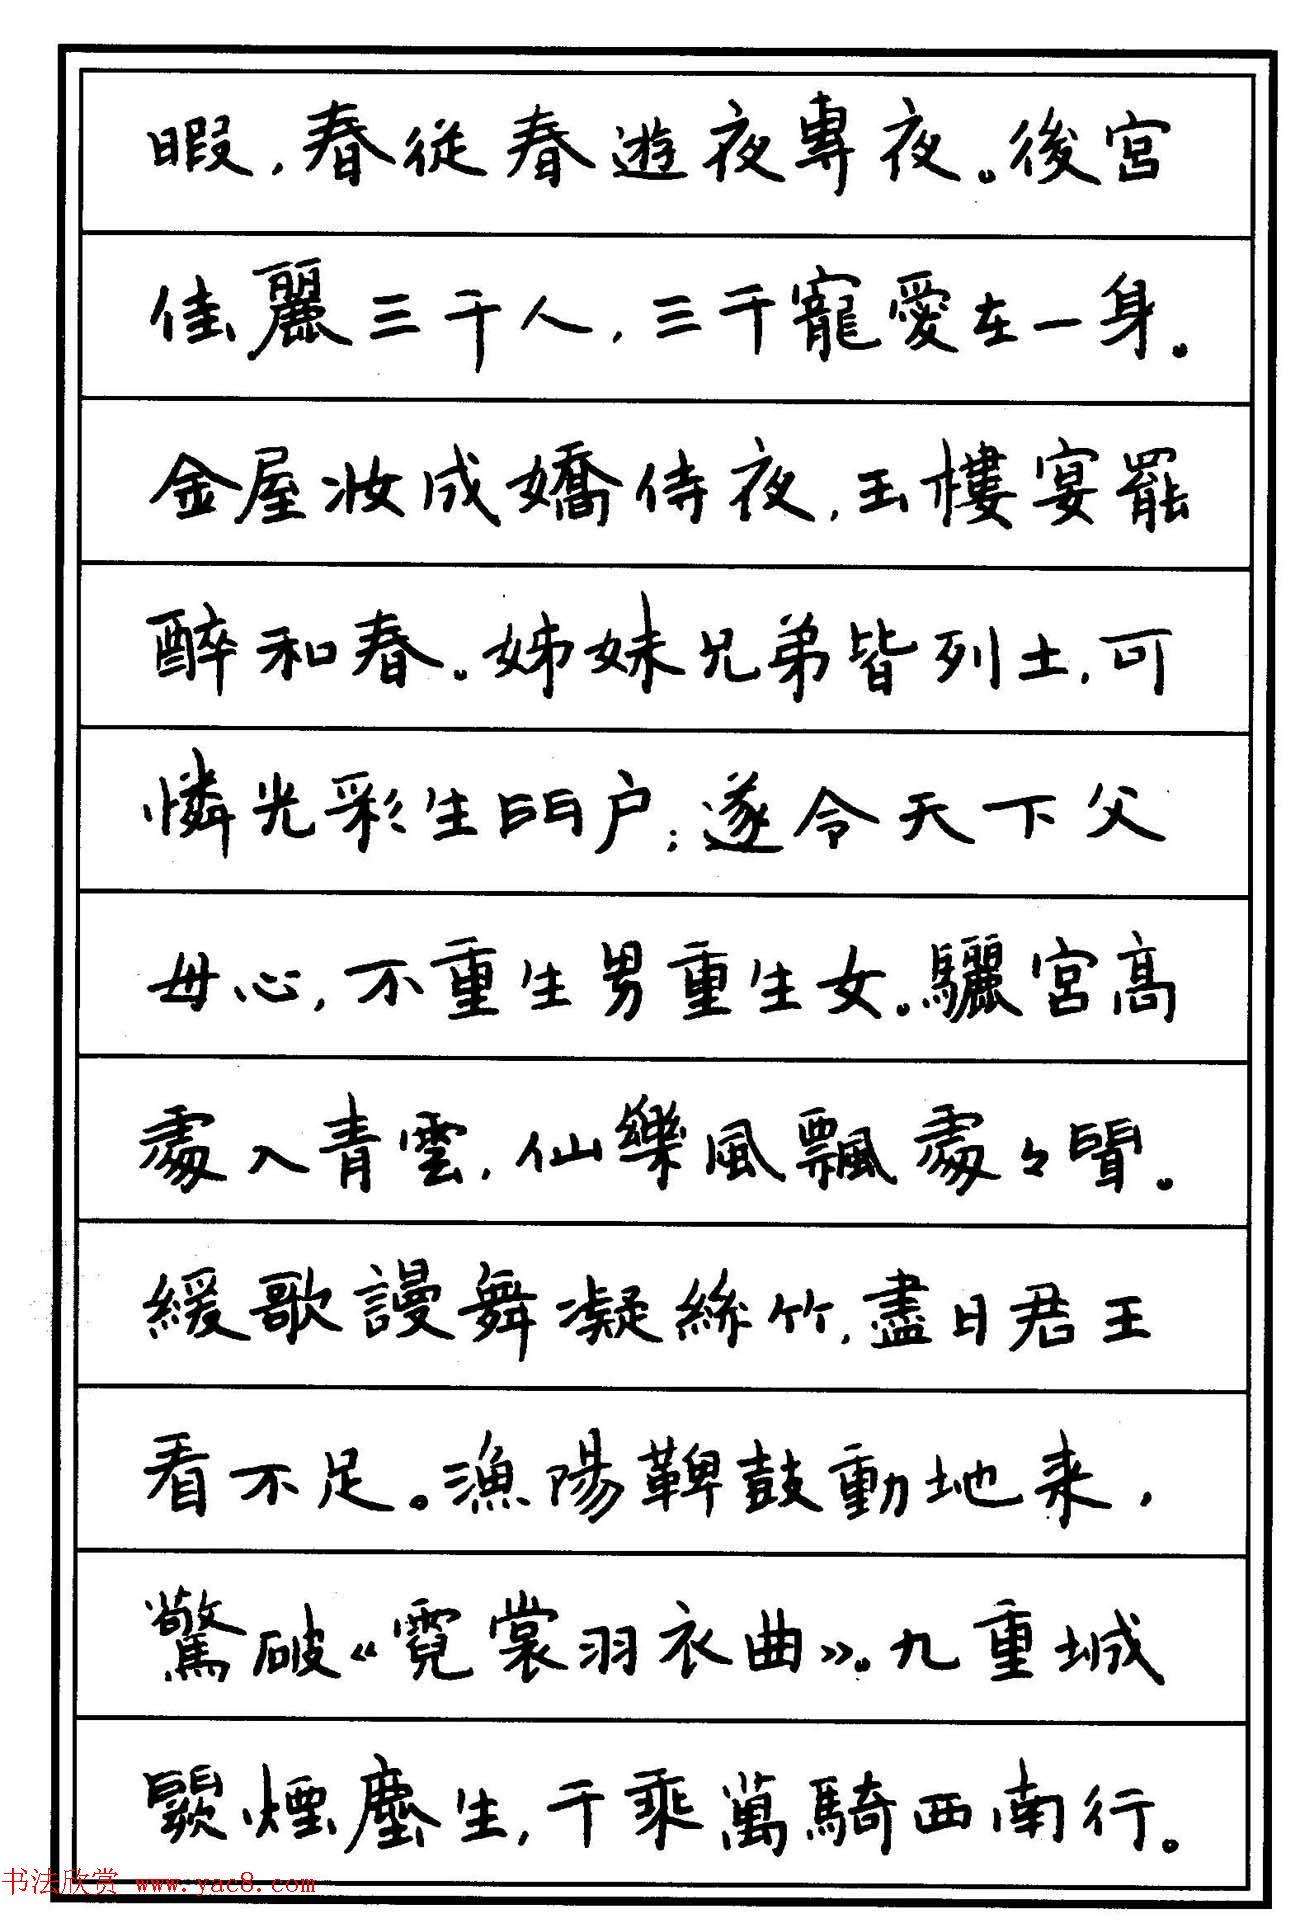 暇，春從春遊夜專夜。後宮
佳麗三千人，三千寵愛在一身。
金屋妝成嬌侍夜，玉樓宴罷
醉和春。姊妹兄弟皆列土，可
憐光彩生門户；遂令天下父
母心，不重生男重生女。驪宮高
處入青雲，仙樂風飄處々聞。
緩歌謾舞凝絲竹，盡日君王
看不足。漁陽鞞鼓動地来，
驚破《霓裳羽衣曲》。九重城
闕煙塵生，千乘萬騎西南行。
书法欣赏 www.yac8.com